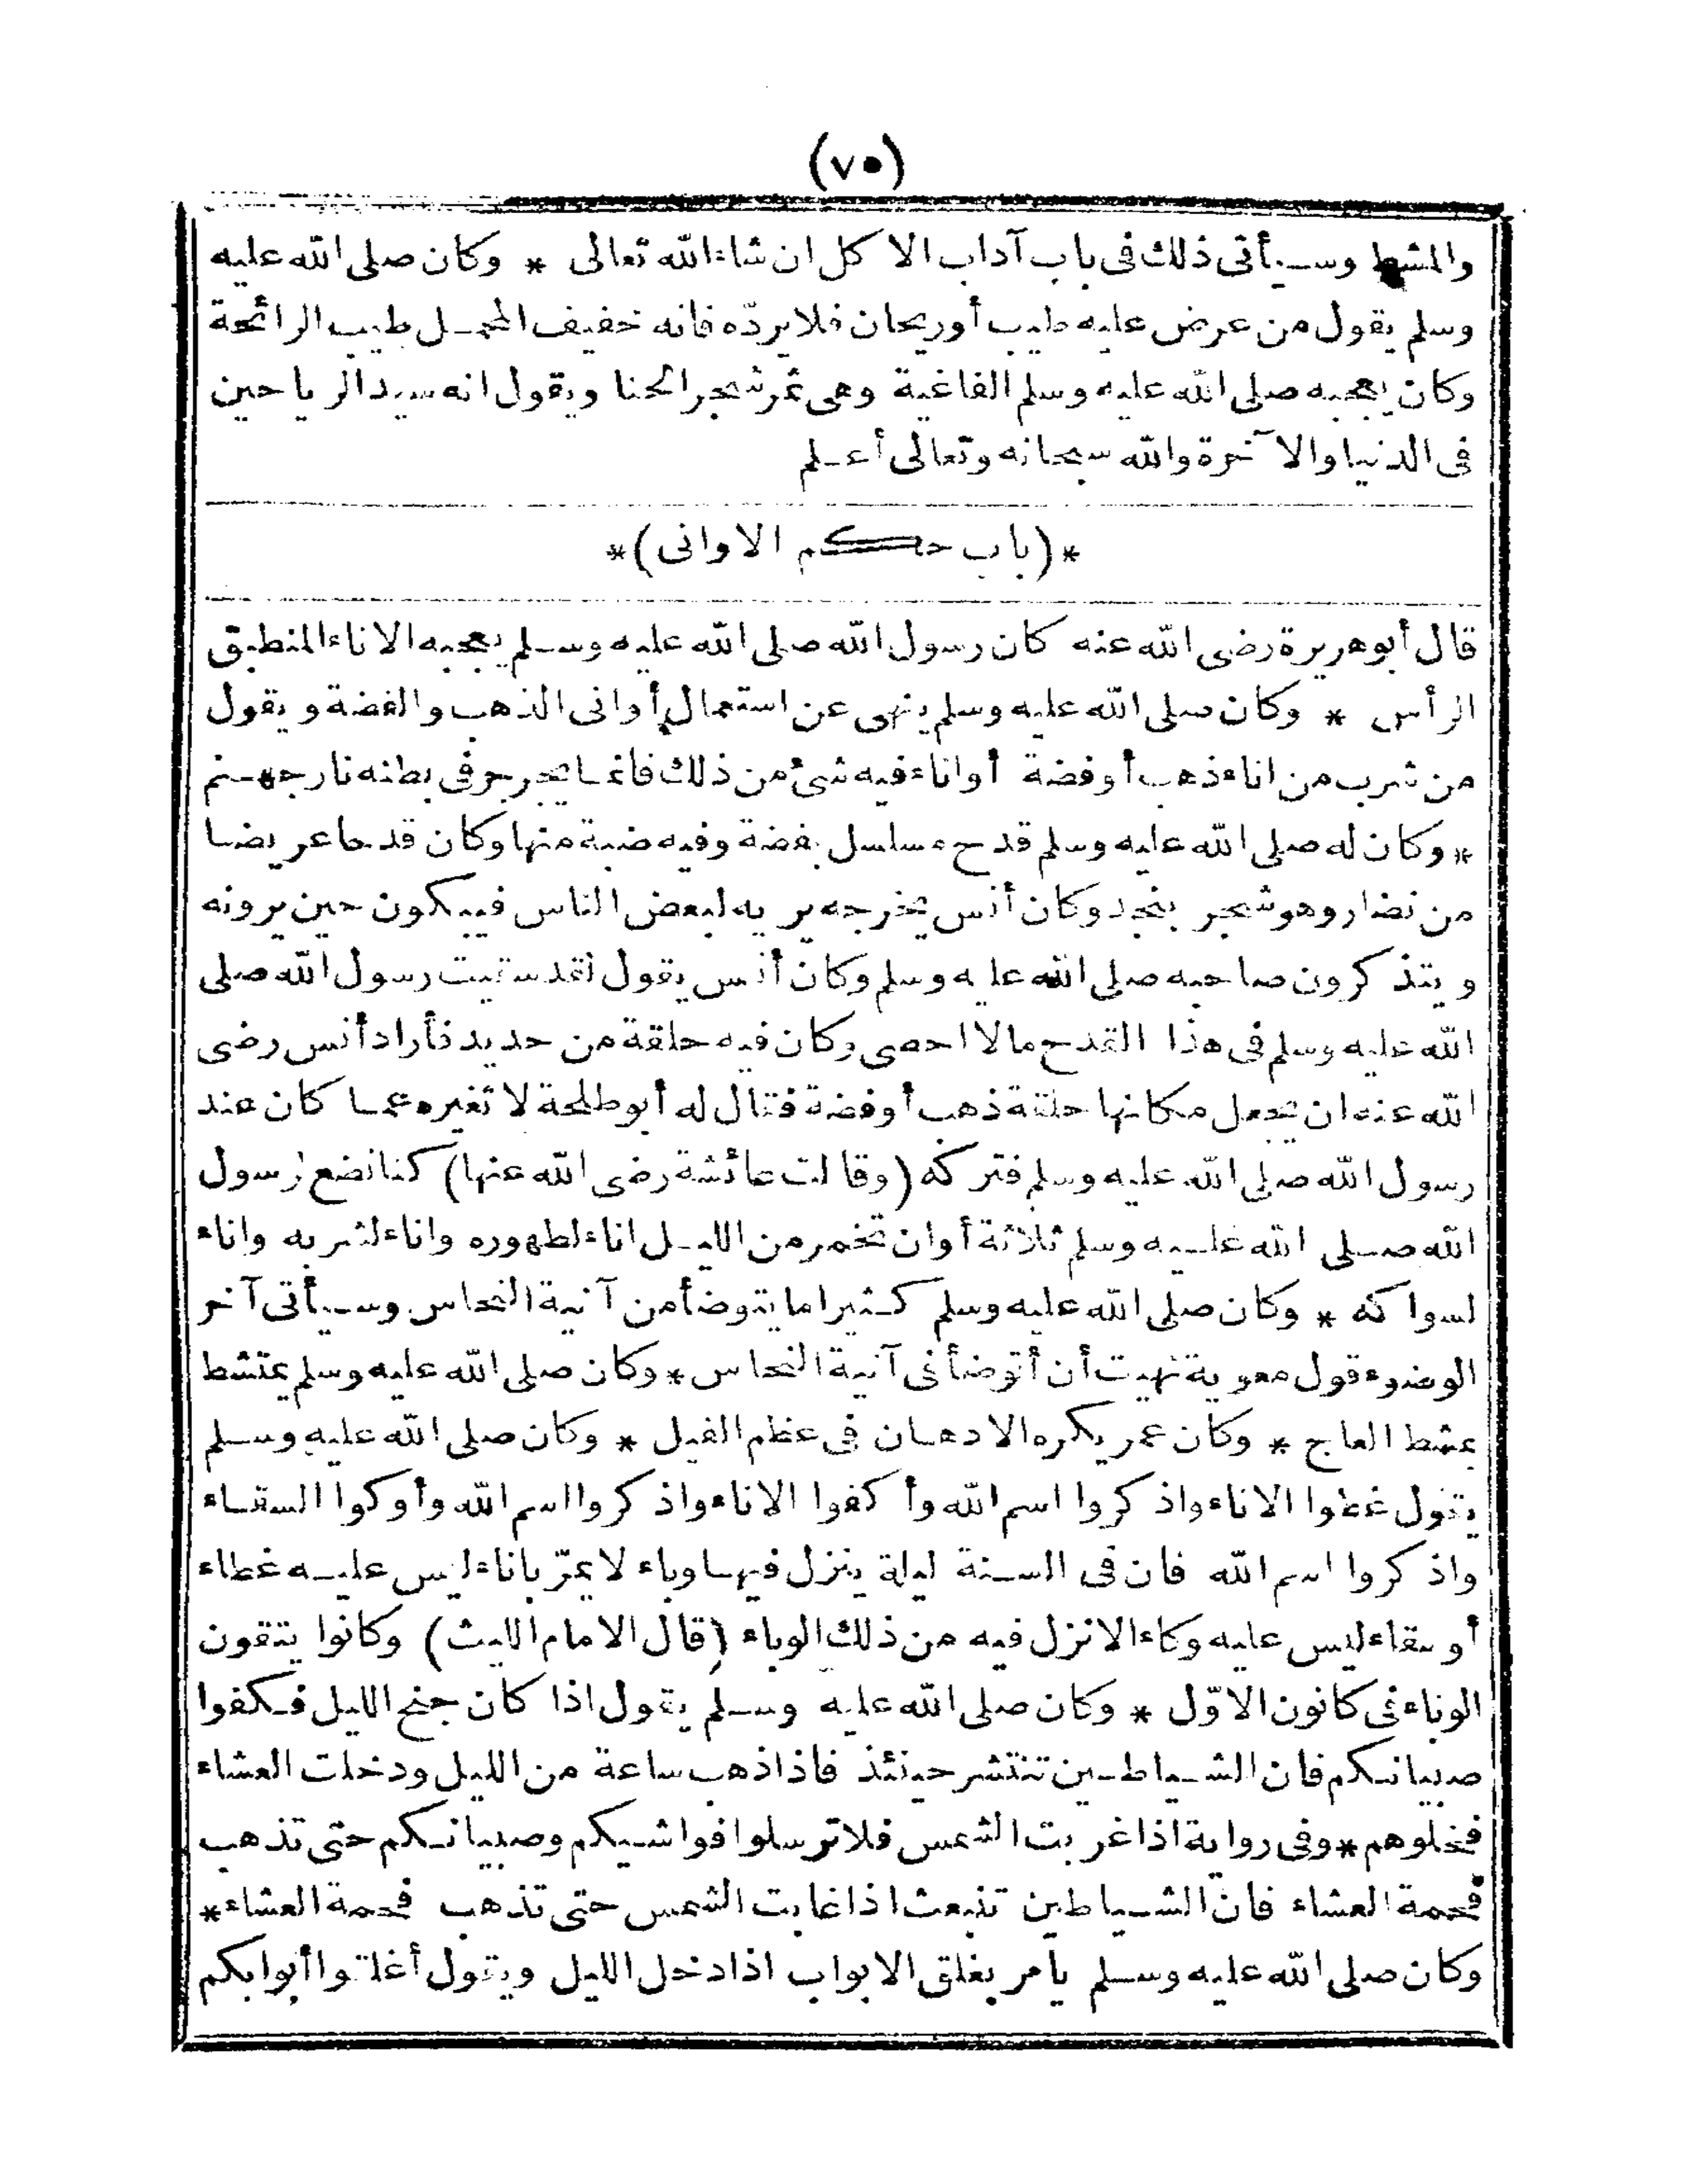 (٧٥)
والمشط وسيأتى ذلك فى باب آداب الاكل ان شاء الله تعالى * وكان صلى الله عليه
وسلم يقول من عرض عليه طيب أوريحان فلا يردّه فانه خفيف المحمل طيب الرائحة
وكان يعجبه صلى الله عليه وسلم الفاغية وهى ثمر شجر الحنا ويقول انه سيد الرياحين
فى الدنيا والآخرة والله سبحانه وتعالى أعلم
*(باب حكم الاوانى)*
قال أبو هريرة رضى الله عنه كان رسول الله صلى الله عليه وسلم يعجبه الاناء المنطبق
الرأس * وكان صلى الله عليه وسلم ينهى عن استعمال أوانى الذهب والفضة ويقول
من شرب من اناء ذهب أوفضة أواناء فيه شئ من ذلك فانما يجرجر فى بطنه نار جهنم
* وكان له صلى الله عليه وسلم قدح مسلسل بفضة وفيه ضبة منها وكان قدحا عريضا
من نضار وهو شجر بنجد وكان أنس يخرجه يريه لبعض الناس فيبكون حين يرونه
ويتذكرون صاحبه صلى الله عليه وسلم وكان أنس يقول لقد سقيت رسول الله صلى
الله عليه وسلم فى هذا القدح مالا احصى وكان فيه حلقة من حديد فأراد أنس رضى
الله عنه ان يجعل مكانها حلقة ذهب أوفضة فقال له أبو طلحة لا تغيره عما كان عند
رسول الله صلى الله عليه وسلم فتركه (وقالت عائشة رضى الله عنها) كنا نضع لرسول
الله صلى الله عليه وسلم ثلاثة أوان تخمر من الليل اناء لطهوره واناء لشربه واناء
لسواكه * وكان صلى الله عليه وسلم كثيرا ما يتوضأ من آنية النحاس وسيأتى آخر
الوضوء قول معوية نهيت أن أتوضأ فى آنية النحاس * وكان صلى الله عليه وسلم يمتشط
بمشط العاج * وكان عمر يكره الادهان فى عظم الفيل * وكان صلى الله عليه وسلم
يقول غطوا الاناء واذكروا اسم الله وأكفوا الاناء واذكروا اسم الله وأوكوا السقاء
واذكروا اسم الله فان فى السنة ليلة ينزل فيها وباء لا يمرّ باناء ليس عليه غطاء
أو سقاء ليس عليه وكاء الا نزل فيه من ذلك الوباء (قال الامام الليث) وكانوا يتقون
الوباء فى كانون الاوّل * وكان صلى الله عليه وسلم يقول اذا كان جنح الليل فكفوا
صبيانكم فان الشياطين تنتشر حينئذ فاذا ذهب ساعة من الليل ودخلت العشاء
فخلوهم * وفى رواية اذا غربت الشمس فلا ترسلوا فواشيكم وصبيانكم حتى تذهب
فحمة العشاء فانّ الشياطين تنبعث اذا غابت الشمس حتى تذهب فحمة العشاء *
وكان صلى الله عليه وسلم يأمر بغلق الابواب اذا دخل الليل ويقول أغلقوا أبوابكم